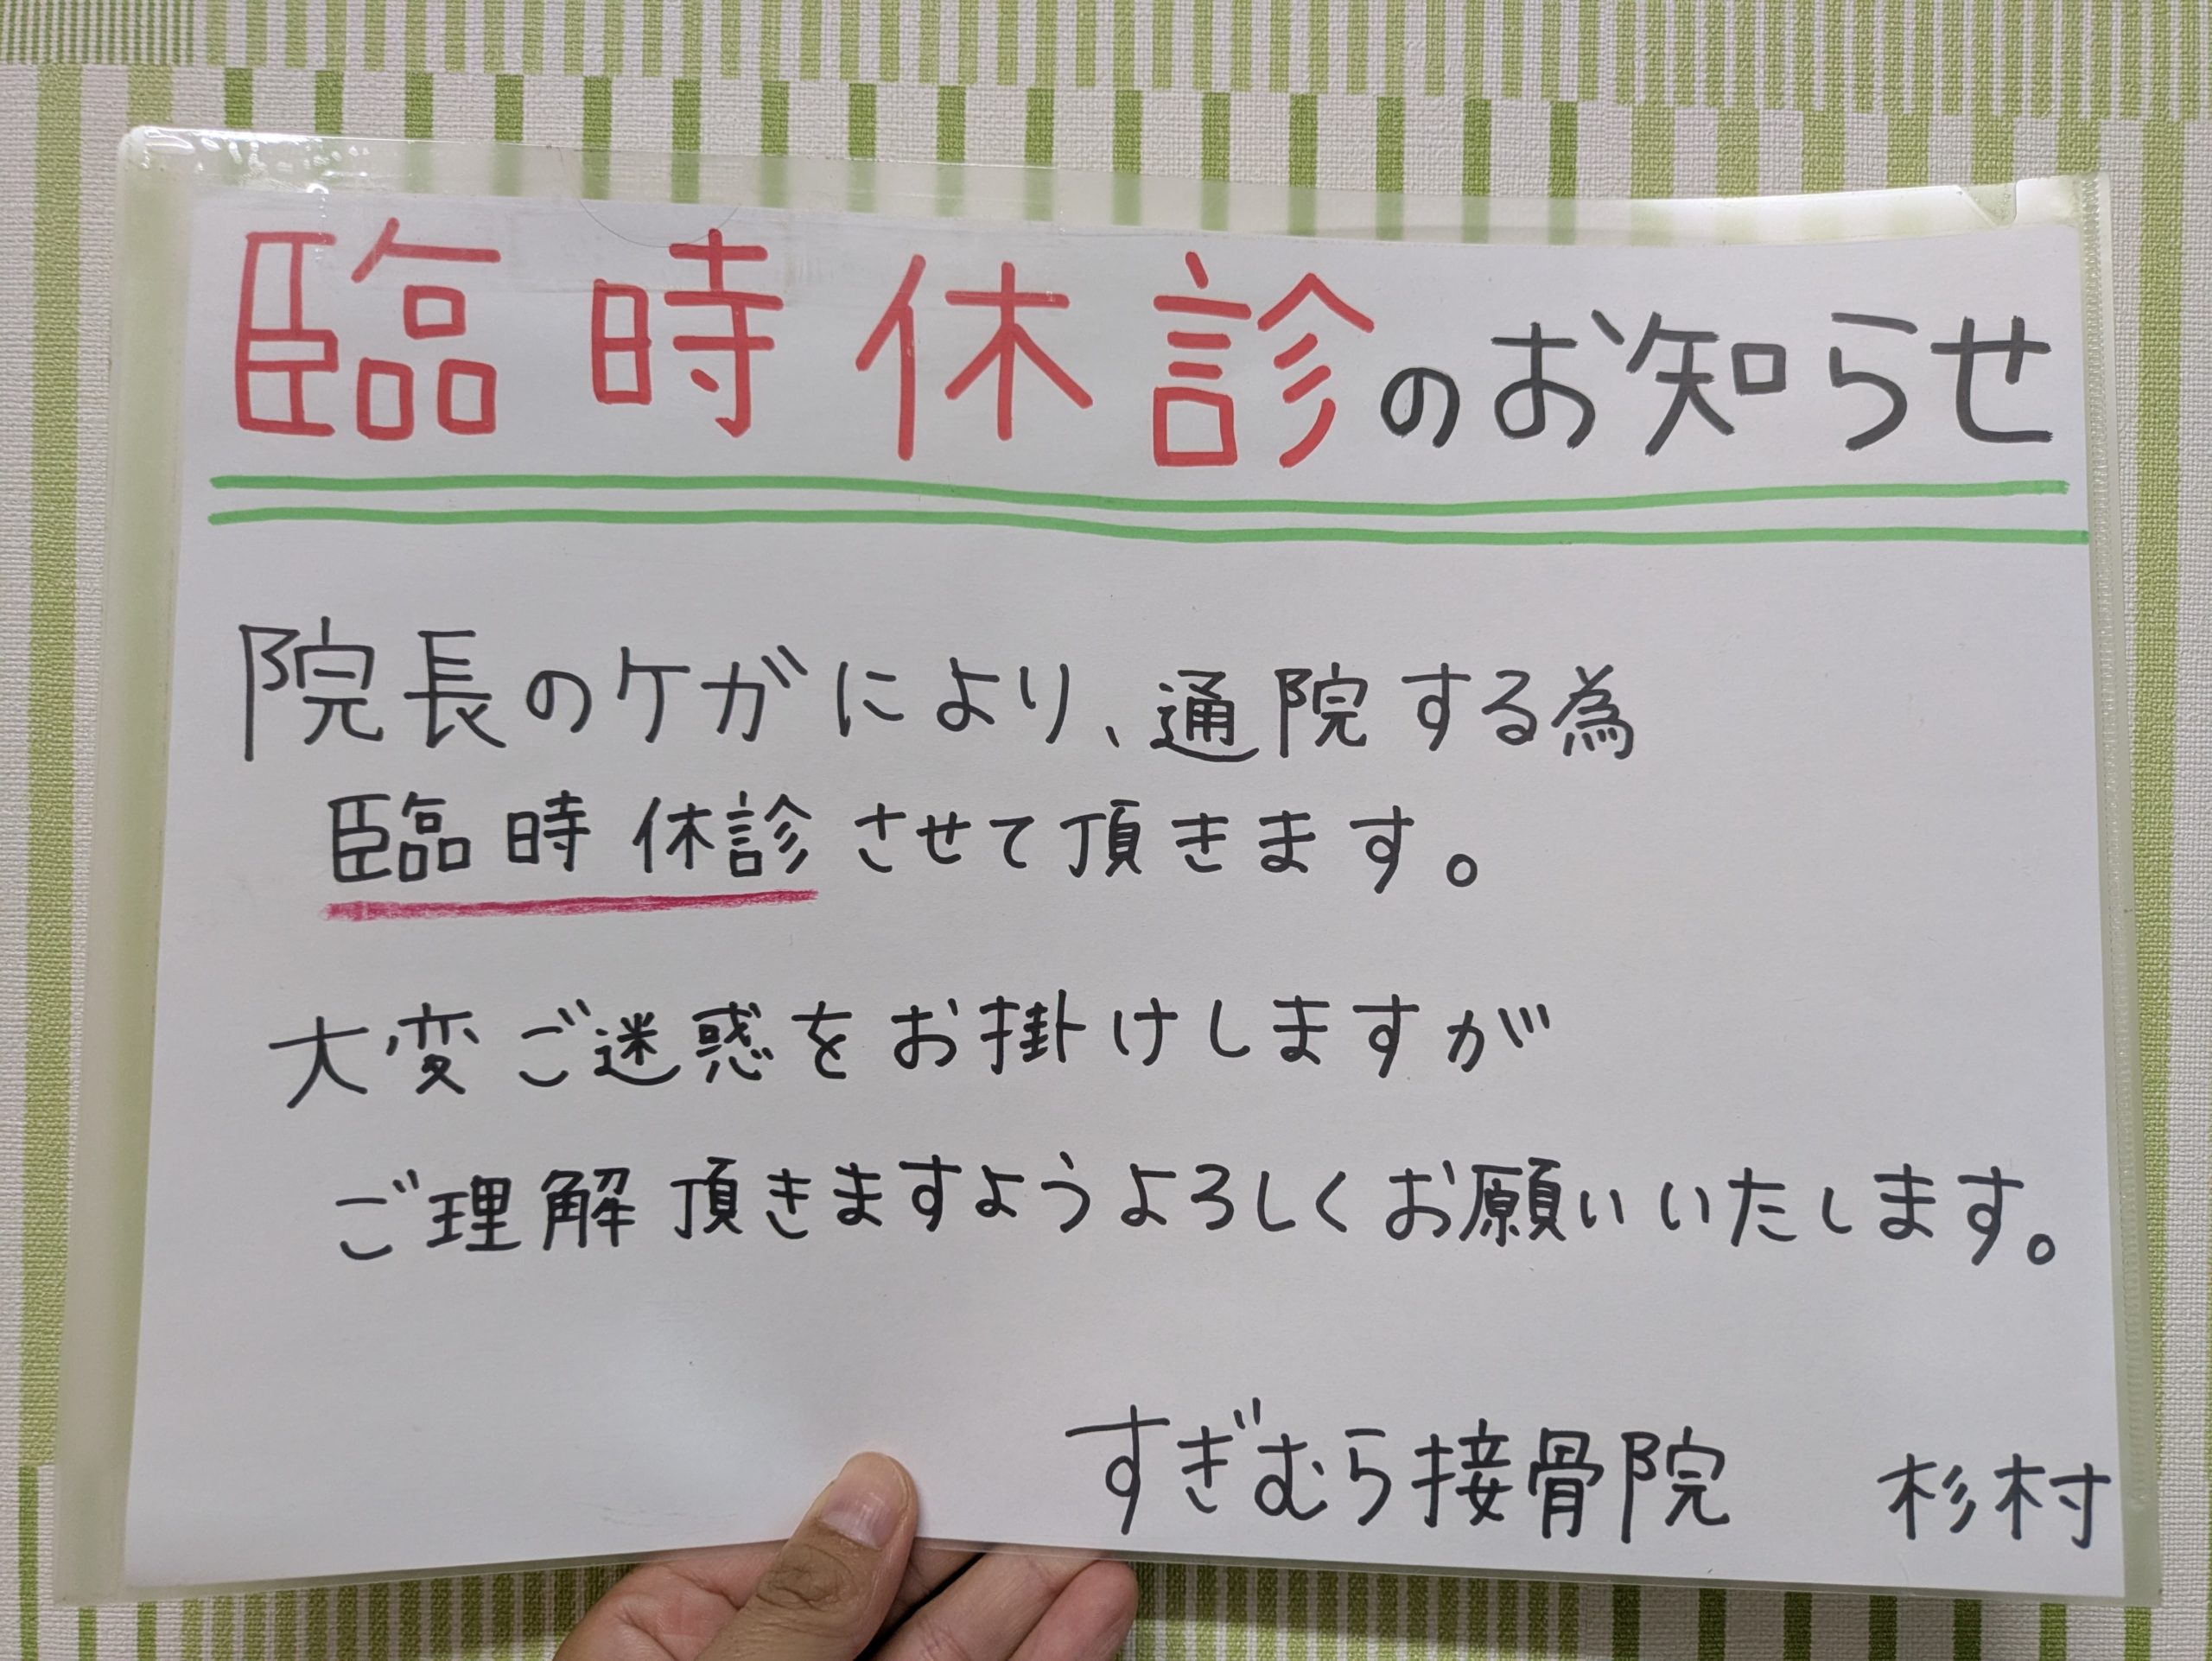 臨時休診のお知らせ
院長のケガにより、通院する為
臨時休診させて頂きます。
大変ご迷惑をお掛けしますが
ご理解頂きますようよろしくお願いいたします。
すぎむら接骨院 杉村